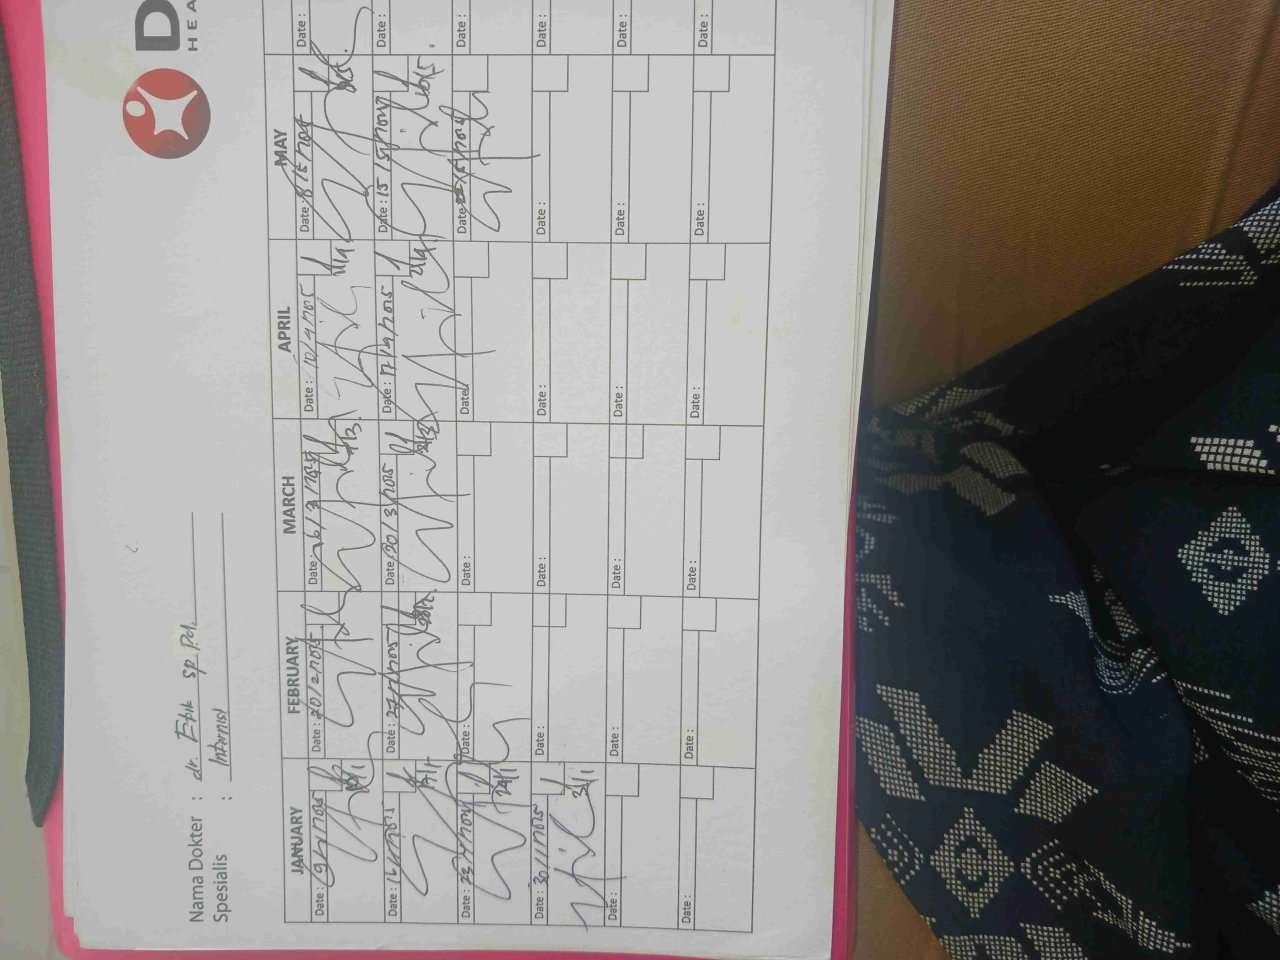 D
HEA
Nama Dokter : dr. Erik sp.PD.
Spesialis : Internist
JANUARY FEBRUARY MARCH APRIL MAY
Date : 9/1/2025 Date : 20/2/2025 Date : 6/3/2025 Date : 10/4/2025 Date : 8/5/2025 Date :
10/1 7/3. 11/4 9/5.
Date : 16/1/2025 Date : 27/2/2025 Date : 20/3/2025 Date : 17/4/2025 Date : 15/5/2025 Date :
17/1 28/2. 21/3 21/4 16/5.
Date : 23/1/2025 Date : Date : Date Date : 22/5/2025 Date :
24/1
Date : 30/1/2025 Date : Date : Date : Date : Date :
31/1
Date : Date : Date : Date : Date : Date :
Date : Date : Date : Date : Date : Date :